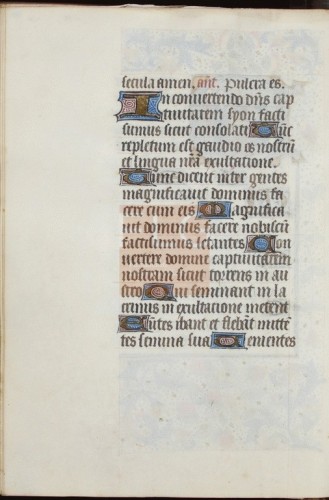 secula amen. añt. Pulcra es.
In convertendo dñs cap
tivitatem syon facti
sumus sicut consolati Tūc
repletum est gaudio os nostrū
et lingua nr̃a exultatione.
Tunc dicent inter gentes
magnificavit dominus fa
cere cum eis Magnifica
vit dominus facere nobiscū
facti sumus letantes Con
vertere domine captivitatem
nostram sicut torrens in au
stro Qui seminant in la
crimis in exultatione metent
Eūtes ibant et flebāt mittē
tes semina sua Venientes